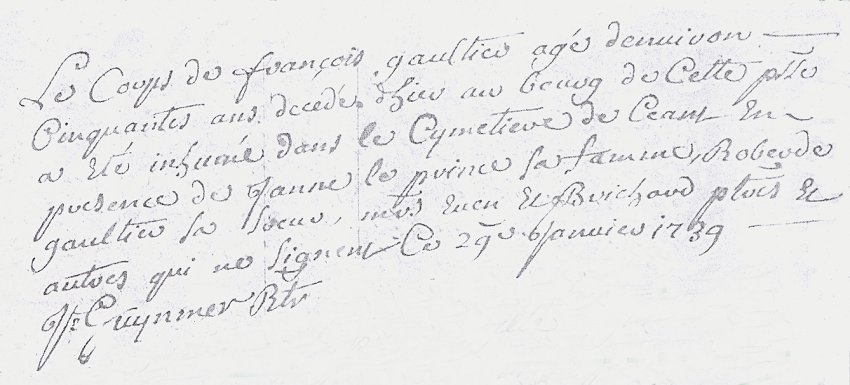 Le Corps de françois gaultier agé denuiron
Cinquantes ans decedé d'hier au bourg de Cette psse
a eté inhumé dans le Cymetiere de Ceant En
presence de Janne le prince sa famme, Roberde
gaultier sa soeur, mrs Euen Et Brichard ptres Et
autres qui ne signent Ce 29e Janvier 1739
Guynmer Rtr